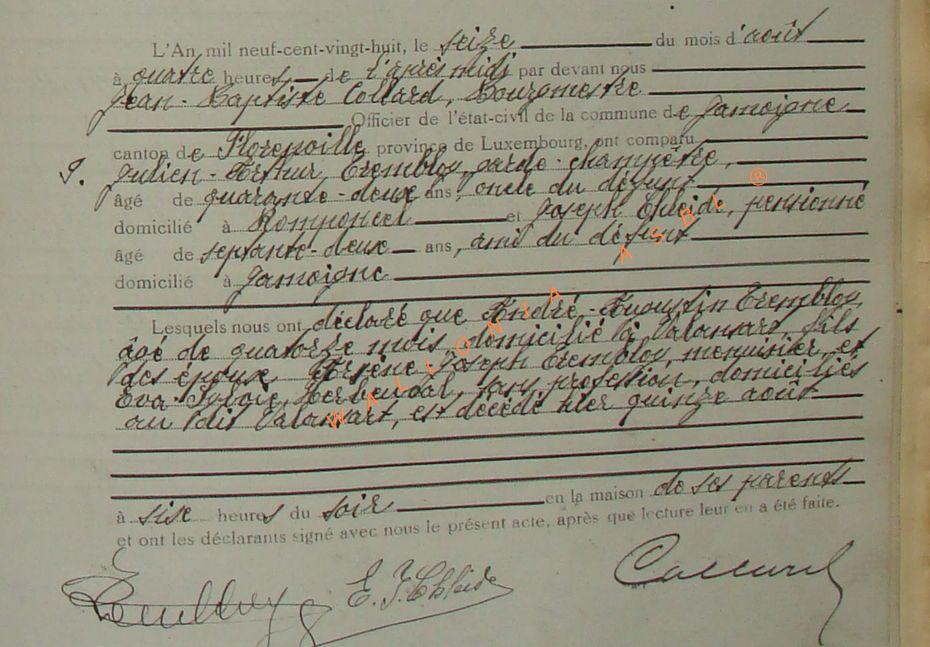 L'An mil neuf-cent-vingt-huit, le seize du mois d'août
à quatre heures de l'après midi par devant nous
Jean-Baptiste Collard, Bourgmestre
Officier de l'état-civil de la commune de Jamoigne
canton de Florenville province de Luxembourg, ont comparu
Julien-Arthur, Trembloy, garde-champêtre,
âgé de quarante-deux ans, oncle du défunt
domicilié à Romponcel et Joseph pensionné
âgé de septante-deux ans, ami du défunt
domicilié à Jamoigne
Lesquels nous ont déclaré que André-Augustin Trembloy,
âgé de quatorze mois, domicilié à Valansart, fils
des époux Arsène-Joseph Trembloy, menuisier, et
Eva Sylvie, sans profession, domiciliés
au dit Valansart, est décédé hier quinze août
à sise heures du soir en la maison de ses parents
et ont les déclarants signé avec nous le présent acte, après que lecture leur en a été faite.
WALLONIA ASBL ®